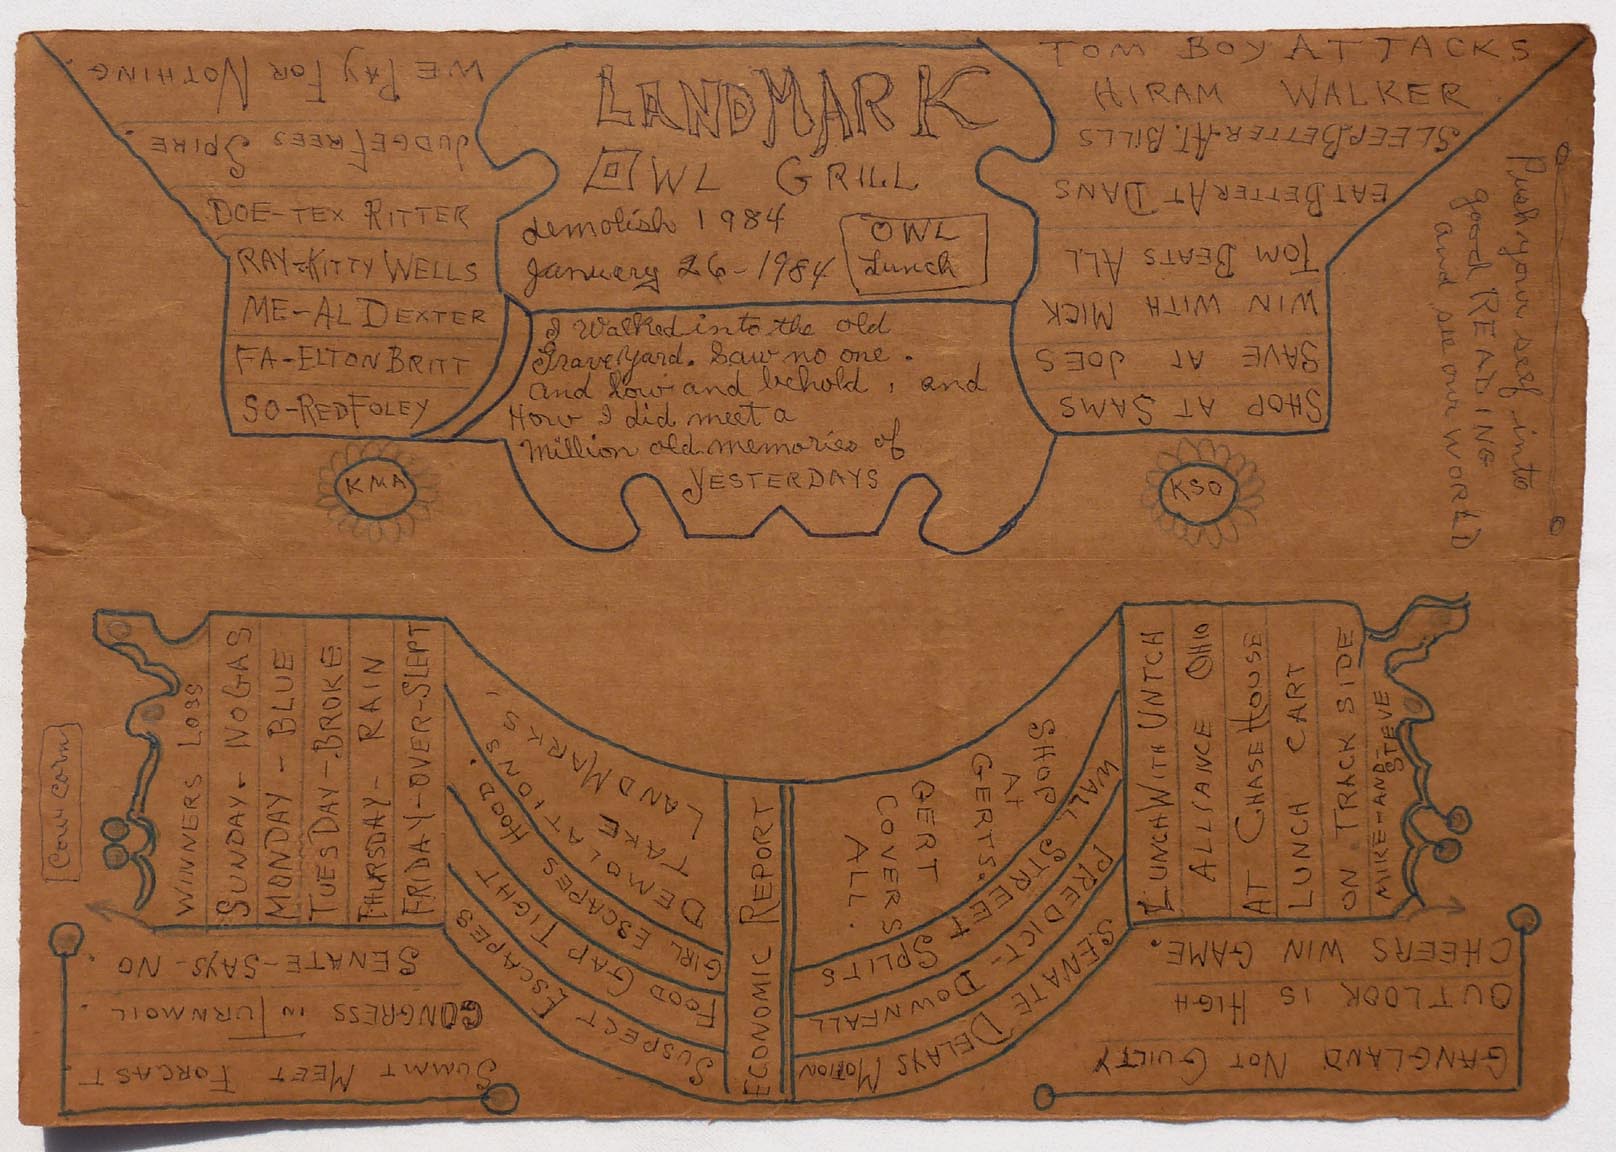 WE PAY FOR NOTHING.
JUDGE FREES SPIRE
DOE-TEX RITTER
RAY-KITTY WELLS
ME-AL DEXTER
FA-ELTON BRITT
SO-RED FOLEY
KMA
LANDMARK
OWL GRILL
demolish 1984
January 26-1984
OWL
Lunch
I Walked into the old
Graveyard. Saw no one.
and Low and behold, and
How I did meet a
Million old memories of
YESTERDAYS
TOM BOY ATTACKS
HIRAM WALKER
SLEEP BETTER AT. BILLS
EAT BETTER AT DANS
TOM BEATS ALL
WIN WITH MICK
SAVE AT JOES
SHOP AT SAMS
KSO
Push your self into
good READING
and see our WORLD
Cow Corn
WINNERS LOSS
SUNDAY- NO GAS
MONDAY - BLUE
TUESDAY-BROKE
THURSDAY- RAIN
FRIDAY-OVER-SLEPT
LANDMARKS,
TAKE
DEMOLATIONS
GIRL ESCAPES HOOD.
FOOD GAP TIGHT
SUSPECT ESCAPES
ECONOMIC REPORT
SHOP
AT
GERTS.
GERT
COVERS
ALL.
WALL STREET SPLITS
PREDICT- DOWNFALL
SENATE DELAYS MOTION
LUNCH WITH UNTCH
ALLIANCE OHIO
AT CHASE HOUSE
LUNCH CART
ON TRACK SIDE
MIKE-AND STEVE
SENATE-SAYS-NO.
CONGRESS IN TURNMOIL.
SUMMT MEET FORCAST
CHEERS WIN GAME.
OUTLOOK IS HIGH
GANGLAND NOT GUILTY